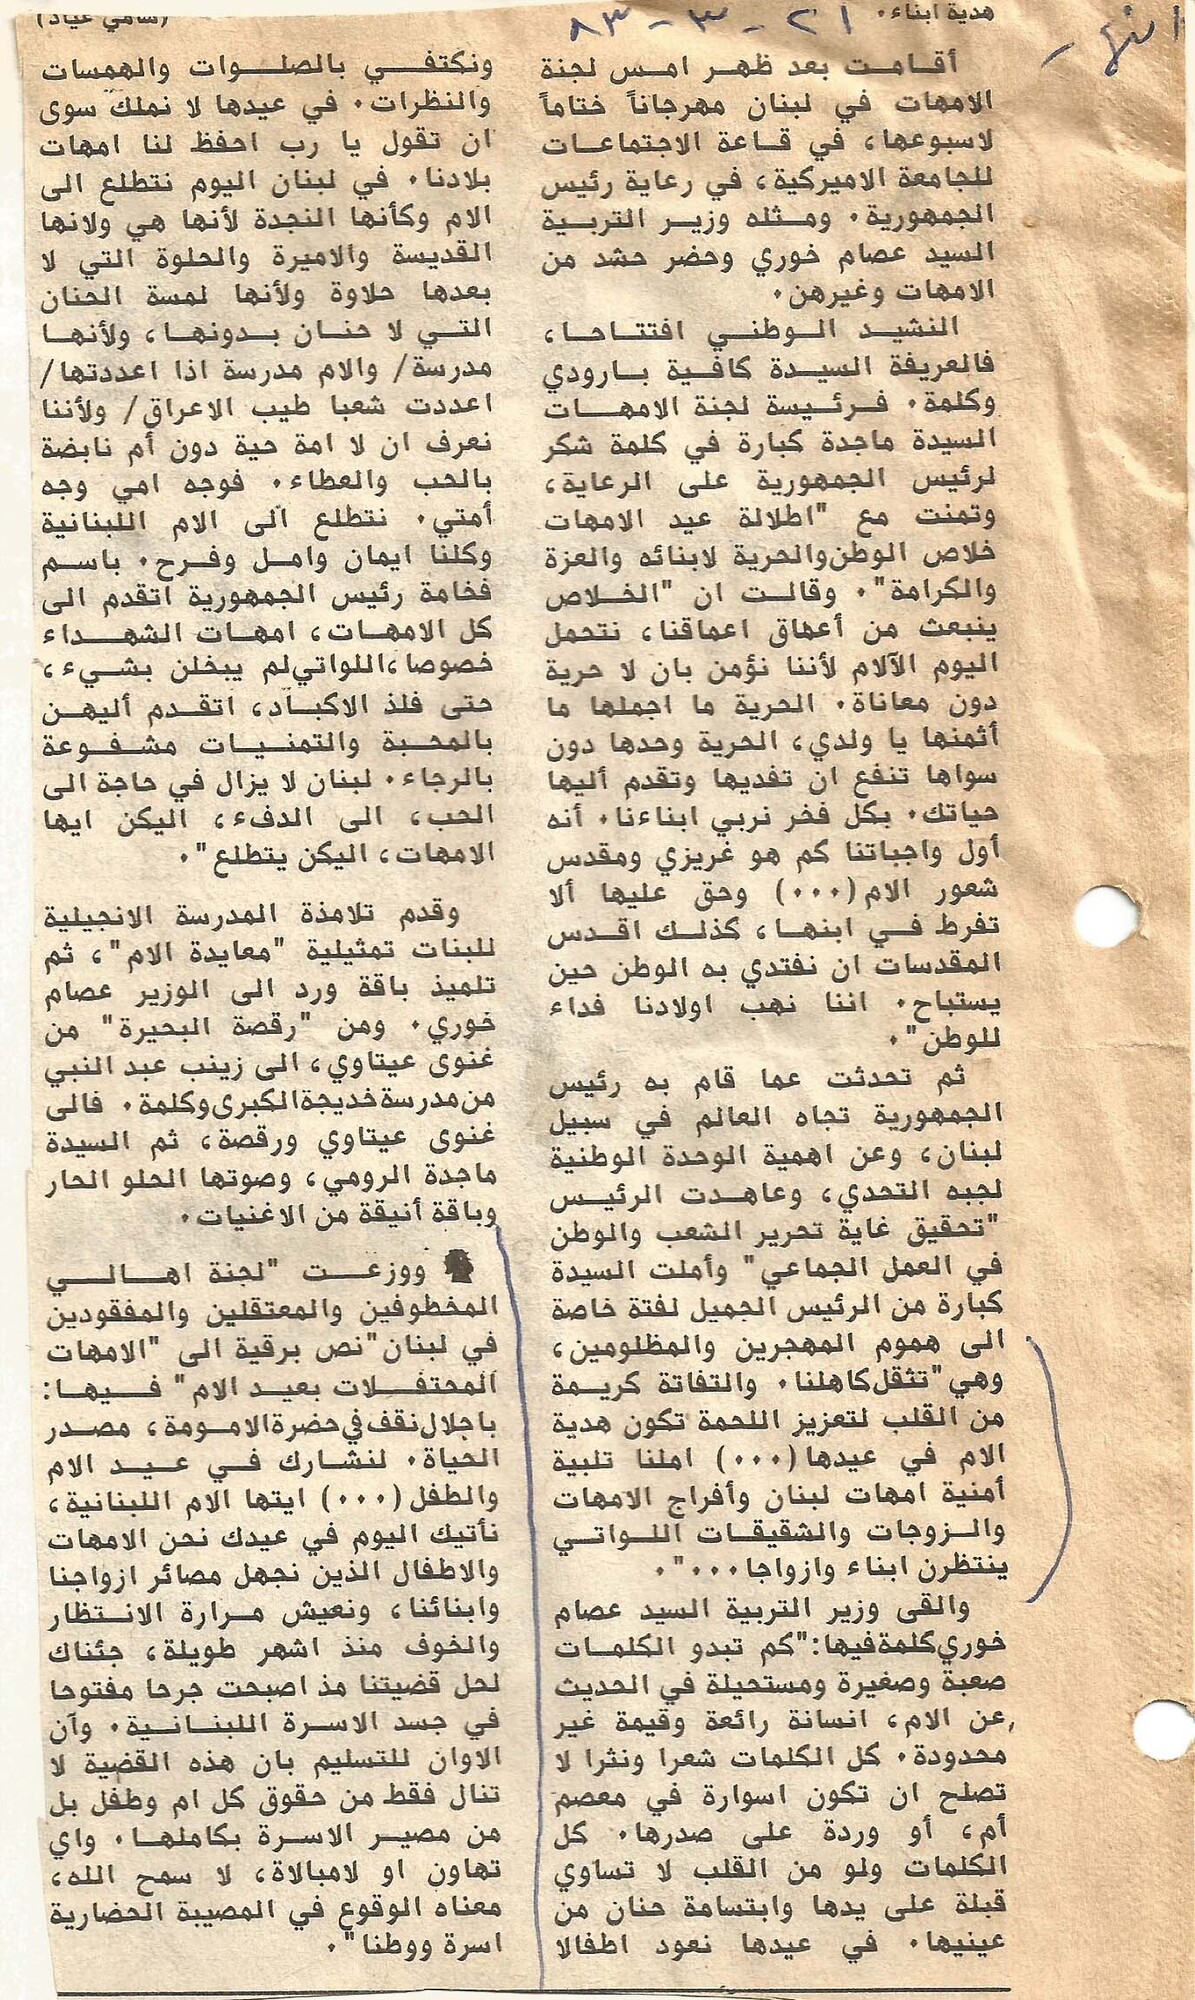 هدية ابناء.
(سامي عياد)
النهار
٢١ - ٣ - ٨٣
أقامت بعد ظهر امس لجنة
الامهات في لبنان مهرجاناً ختاماً
لاسبوعها، في قاعة الاجتماعات
للجامعة الاميركية، في رعاية رئيس
الجمهورية. ومثله وزير التربية
السيد عصام خوري وحضر حشد من
الامهات وغيرهن.
النشيد الوطني افتتاحا،
فالعريفة السيدة كافية بارودي
وكلمة. فرئيسة لجنة الامهات
السيدة ماجدة كبارة في كلمة شكر
لرئيس الجمهورية على الرعاية،
وتمنت مع "اطلالة عيد الامهات
خلاص الوطن والحرية لابنائه والعزة
والكرامة". وقالت ان "الخلاص
ينبعث من أعماق اعماقنا، نتحمل
اليوم الآلام لأننا نؤمن بان لا حرية
دون معاناة. الحرية ما اجملها ما
أثمنها يا ولدي، الحرية وحدها دون
سواها تنفع ان تفديها وتقدم أليها
حياتك. بكل فخر نربي ابناءنا. أنه
أول واجباتنا كم هو غريزي ومقدس
شعور الام (...) وحق عليها ألا
تفرط في ابنها، كذلك اقدس
المقدسات ان نفتدي به الوطن حين
يستباح. اننا نهب اولادنا فداء
للوطن".
ثم تحدثت عما قام به رئيس
الجمهورية تجاه العالم في سبيل
لبنان، وعن اهمية الوحدة الوطنية
لجبه التحدي، وعاهدت الرئيس
"تحقيق غاية تحرير الشعب والوطن
في العمل الجماعي" وأملت السيدة
كبارة من الرئيس الجميل لفتة خاصة
الى هموم المهجرين والمظلومين،
وهي "تثقل كاهلنا. والتفاتة كريمة
من القلب لتعزيز اللحمة تكون هدية
الام في عيدها (...) املنا تلبية
أمنية امهات لبنان وأفراج الامهات
والزوجات والشقيقات اللواتي
ينتظرن ابناء وازواجا...".
والقى وزير التربية السيد عصام
خوري كلمة فيها: "كم تبدو الكلمات
صعبة وصغيرة ومستحيلة في الحديث
عن الام، انسانة رائعة وقيمة غير
محدودة. كل الكلمات شعرا ونثرا لا
تصلح ان تكون اسوارة في معصم
أم، أو وردة على صدرها. كل
الكلمات ولو من القلب لا تساوي
قبلة على يدها وابتسامة حنان من
عينيها. في عيدها نعود اطفالا
ونكتفي بالصلوات والهمسات
والنظرات. في عيدها لا نملك سوى
ان تقول يا رب احفظ لنا امهات
بلادنا. في لبنان اليوم نتطلع الى
الام وكأنها النجدة لأنها هي ولانها
القديسة والاميرة والحلوة التي لا
بعدها حلاوة ولأنها لمسة الحنان
التي لا حنان بدونها، ولأنها
مدرسة/ والام مدرسة اذا اعددتها/
اعددت شعبا طيب الاعراق/ ولأننا
نعرف ان لا امة حية دون أم نابضة
بالحب والعطاء. فوجه امي وجه
أمتي. نتطلع الى الام اللبنانية
وكلنا ايمان وامل وفرح. باسم
فخامة رئيس الجمهورية اتقدم الى
كل الامهات، امهات الشهداء
خصوصا، اللواتي لم يبخلن بشيء،
حتى فلذ الاكباد، اتقدم أليهن
بالمحبة والتمنيات مشفوعة
بالرجاء. لبنان لا يزال في حاجة الى
الحب، الى الدفء، اليكن ايها
الامهات، اليكن يتطلع".
وقدم تلامذة المدرسة الانجيلية
للبنات تمثيلية "معايدة الام"، ثم
تلميذ باقة ورد الى الوزير عصام
خوري. ومن "رقصة البحيرة" من
غنوى عيتاوي، الى زينب عبد النبي
من مدرسة خديجة الكبرى وكلمة. فالى
غنوى عيتاوي ورقصة، ثم السيدة
ماجدة الرومي، وصوتها الحلو الحار
وباقة أنيقة من الاغنيات.
ووزعت "لجنة اهالي
المخطوفين والمعتقلين والمفقودين
في لبنان" نص برقية الى "الامهات
المحتفلات بعيد الام" فيها:
باجلال نقف في حضرة الامومة، مصدر
الحياة. لنشارك في عيد الام
والطفل (...) ايتها الام اللبنانية،
نأتيك اليوم في عيدك نحن الامهات
والاطفال الذين نجهل مصائر ازواجنا
وابنائنا، ونعيش مرارة الانتظار
والخوف منذ اشهر طويلة، جئناك
لحل قضيتنا مذ اصبحت جرحا مفتوحا
في جسد الاسرة اللبنانية. وآن
الاوان للتسليم بان هذه القضية لا
تنال فقط من حقوق كل ام وطفل بل
من مصير الاسرة بكاملها. واي
تهاون او لامبالاة، لا سمح الله،
معناه الوقوع في المصيبة الحضارية
اسرة ووطنا".